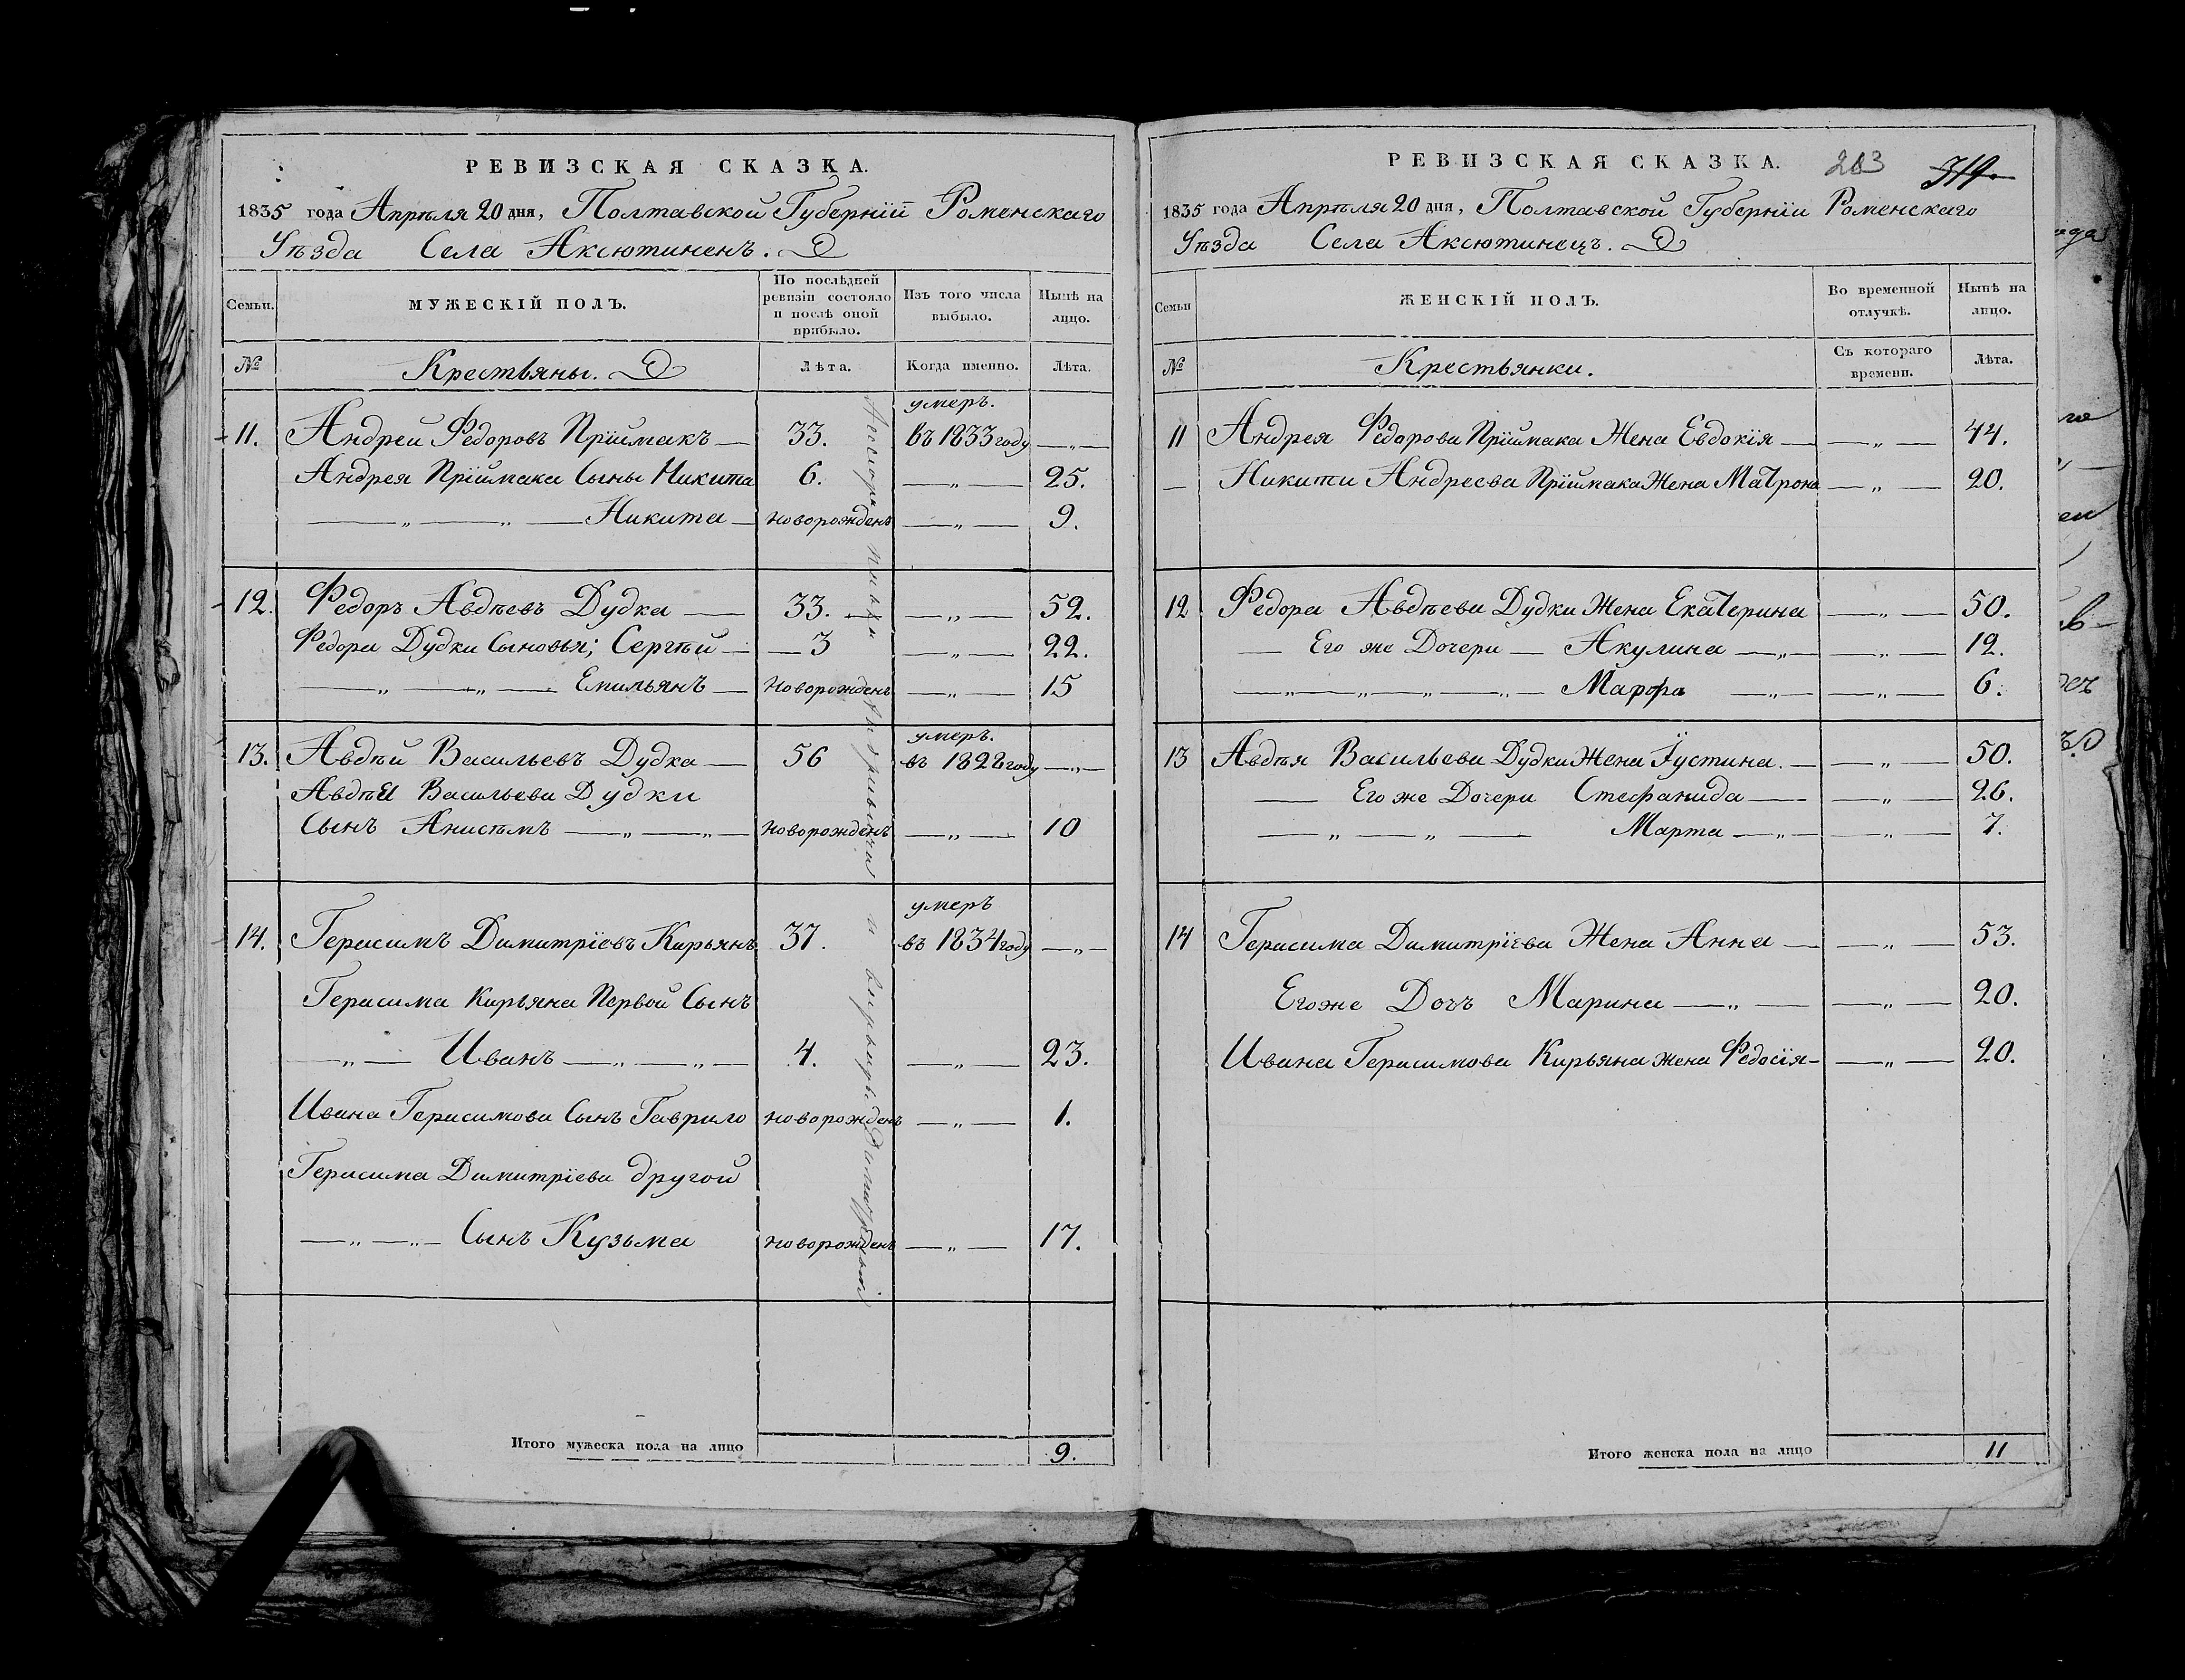 РЕВИЗСКАЯ СКАЗКА.
1835 года Апрѣля 20 дня, Полтавской Губернїи Роменскаго
Уѣзда Села Аксютинецъ.
Семьи. МУЖЕСКІЙ ПОЛЪ. По послѣдней ревизіи состояло и послѣ оной прибыло. Изъ того числа выбыло. Нынѣ на лицо.
№ Крестьяны. Лѣта. Когда именно. Лѣта.
умеръ.
11. Андрей Федоровъ Прїймакъ — 33. въ 1833 году —„—
Андрея Прїймака Сыны Никита 6. —„— 25.
—„—„— Никита — новорожденъ —„— 9.
12. Федоръ Авдѣевъ Дудка — 33. — —„— 52.
Федора Дудки Сыновья; Сергѣй — — 3 —„— 22.
—„—„— Емильянъ — новорожденъ —„— 15
умеръ.
13. Авдѣй Васильевъ Дудка — 56 въ 1828 году —„—
Авдѣя Васильева Дудки
Сынъ Анисѣмъ —„—„— новорожденъ —„— 10
умеръ
14. Герасимъ Димитрїевъ Кирьянъ 37. въ 1834 году —„—
Герасима Кирьяна Первой Сынъ
—„— Иванъ —„—„— 4. —„— 23.
Ивана Герасимова Сынъ Гаврило новорожденъ —„— 1.
Герасима Димитрїева другой
—„—„— Сынъ Кузьма новорожденъ —„— 17.
Итого мужеска пола на лицо 9.
РЕВИЗСКАЯ СКАЗКА. 283 319.
1835 года Апрѣля 20 дня, Полтавской Губернїи Роменскаго
Уѣзда Села Аксютинецъ.
Семьи ЖЕНСКІЙ ПОЛЪ. Во временной отлучкѣ. Нынѣ на лицо.
№ Крестьянки. Съ котораго времени. Лѣта.
11 Андрея Федорова Прїймака Жена Евдокїя — —„— 44.
— Никиты Андреева Прїймака Жена Матрона —„— 20.
12 Федора Авдѣева Дудки Жена Екатерина —„— 50.
— Его же Дочери — Акулина —„— —„— 12.
—„—„—„—„— Марфа —„— —„— 6.
13 Авдѣя Васильева Дудки Жена Їустина. — —„— 50.
— Его же Дочери Стефанида — —„— 26.
—„—„— Марта —„— —„— 7.
14 Герасима Димитрїева Жена Анна — —„— 53.
Его же Дочь Марина —„— —„— 20.
Ивана Герасимова Кирьяна жена Федосїя — —„— 20.
Итого женска пола на лицо 11